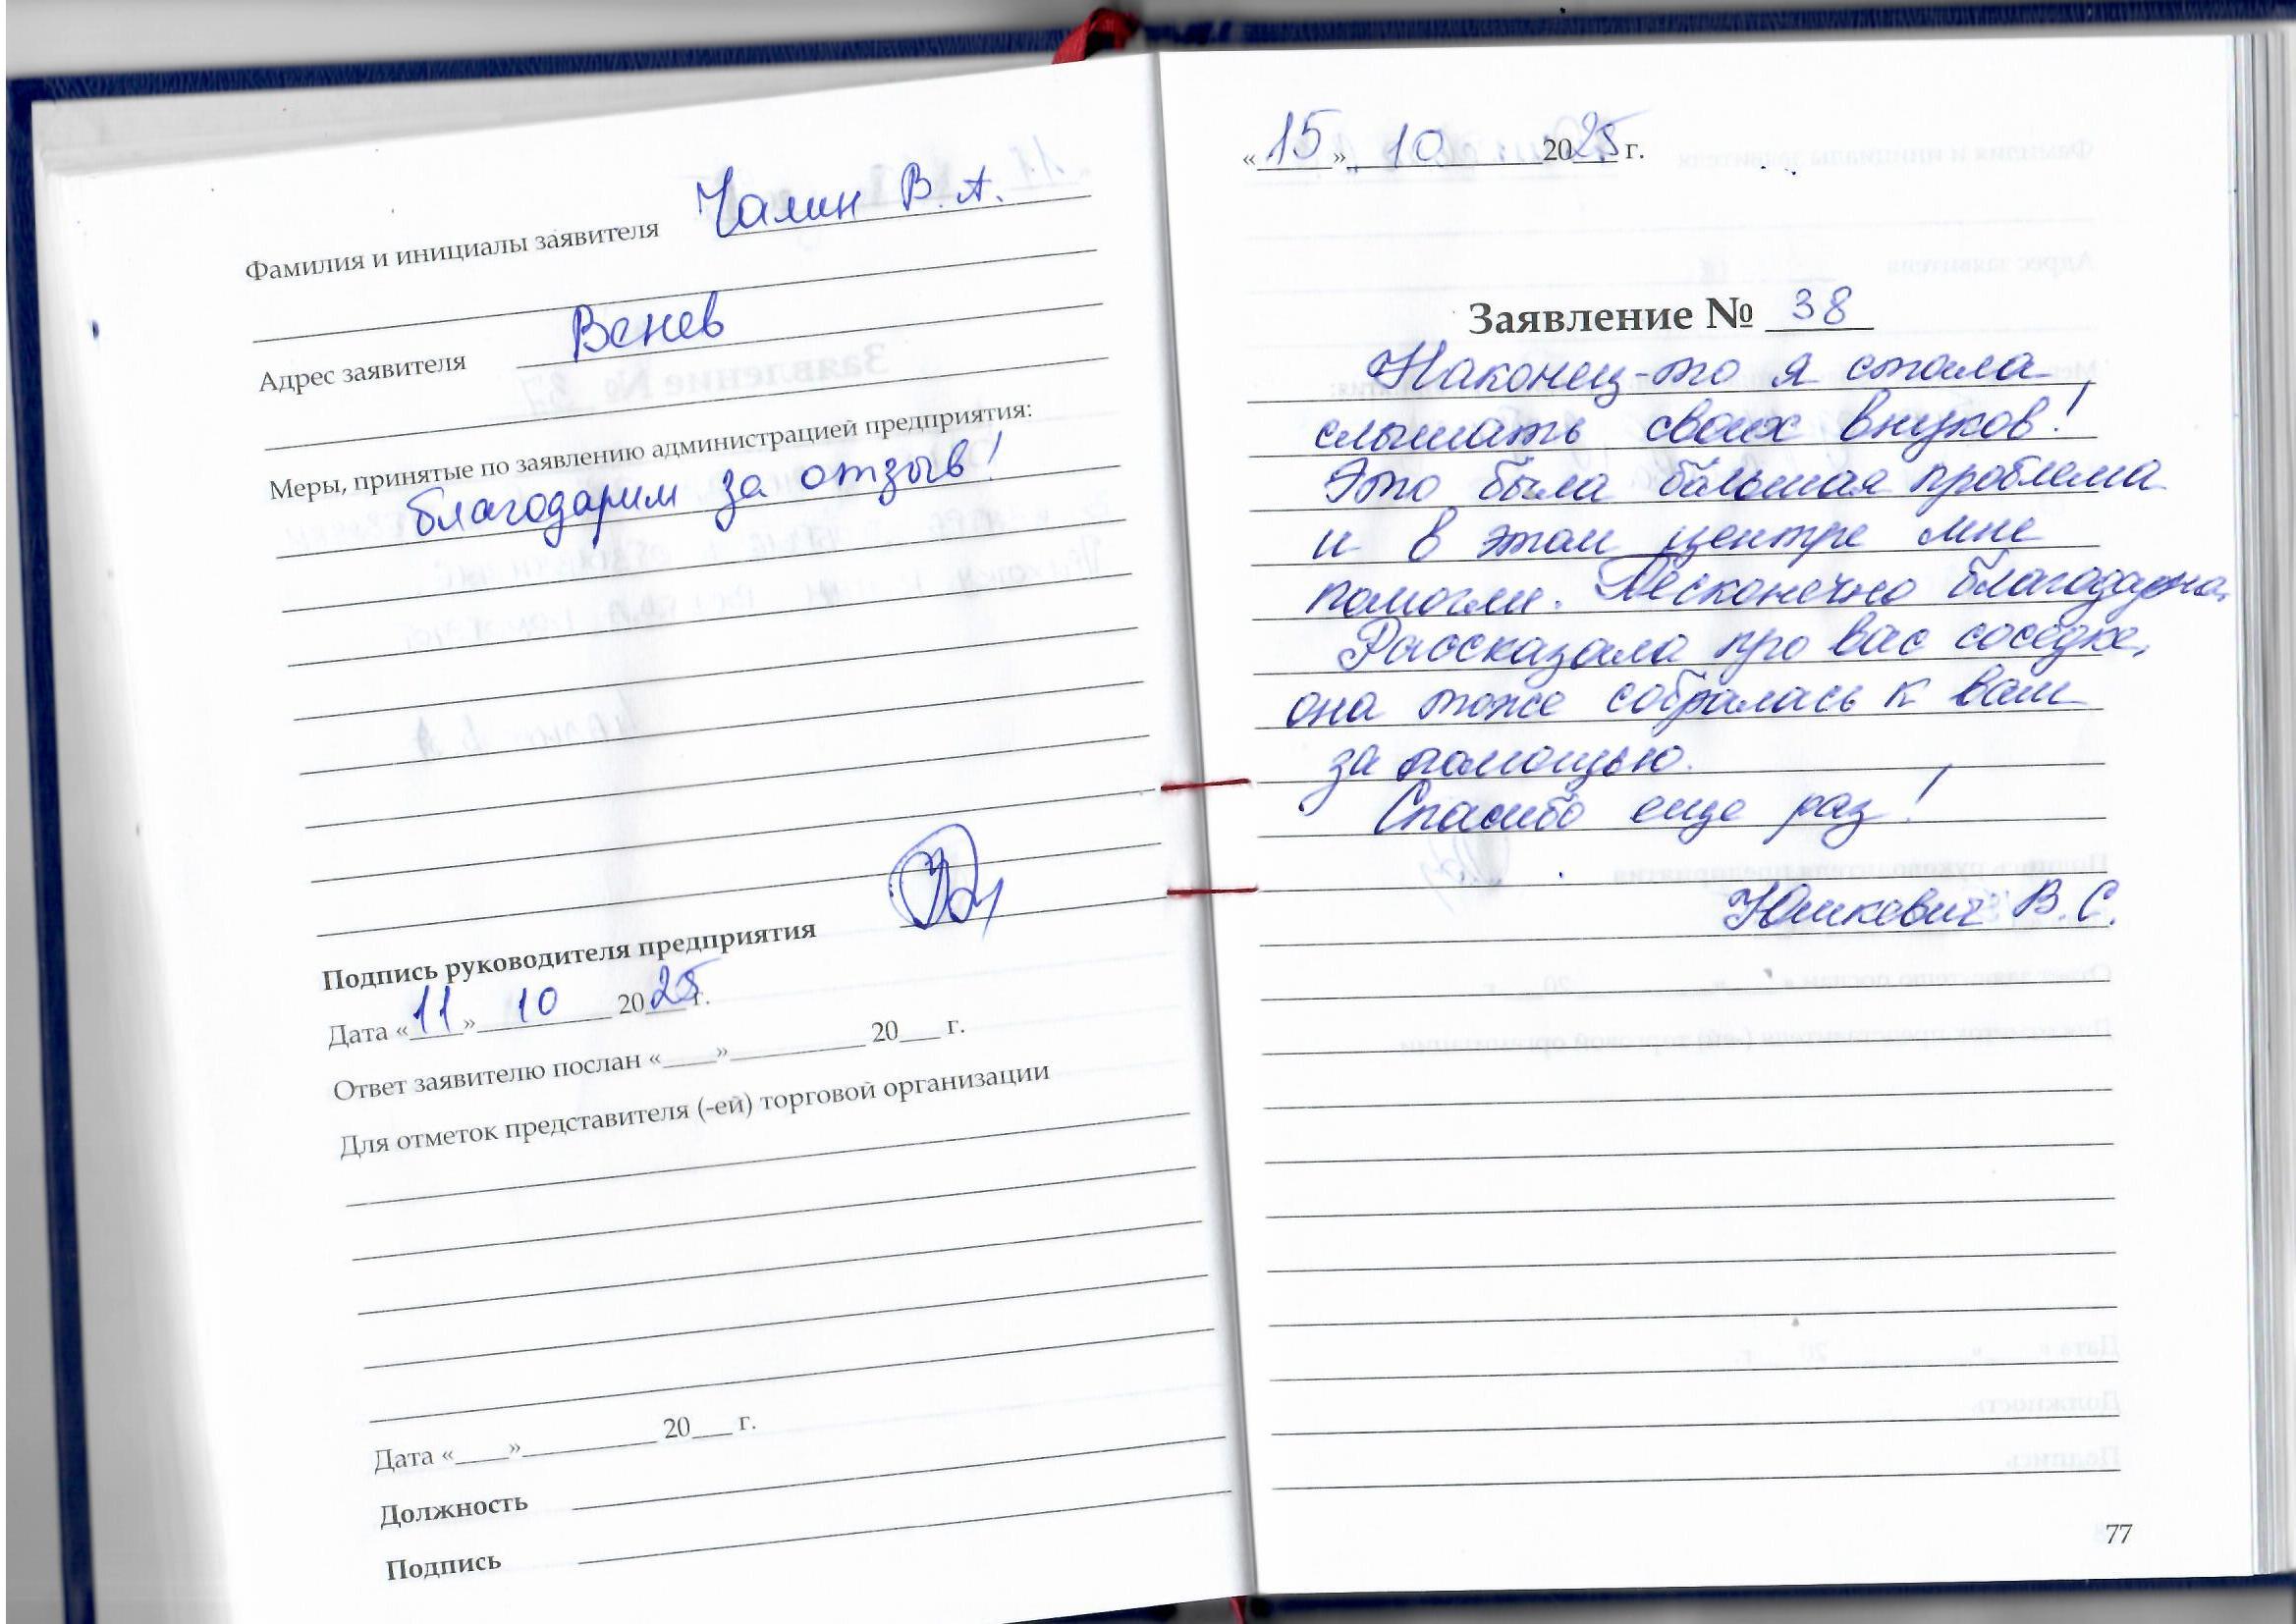 Фамилия и инициалы заявителя Чалин В.А.
Адрес заявителя Венев
Меры, принятые по заявлению администрацией предприятия:
благодарим за отзыв!
Подпись руководителя предприятия
Дата «11» 10 2025 г.
Ответ заявителю послан «____»__________ 20___ г.
Для отметок представителя (-ей) торговой организации
Дата «____»__________ 20___ г.
Должность
Подпись
«15» 10 2025 г.
Заявление № 38
Наконец-то я стала
слышать своих внуков!
Это была большая проблема
и в этом центре мне
помогли. Бесконечно благодарна.
Рассказала про вас соседке,
она тоже собралась к вам
за помощью.
Спасибо еще раз!
Юшкевич В.С.
77